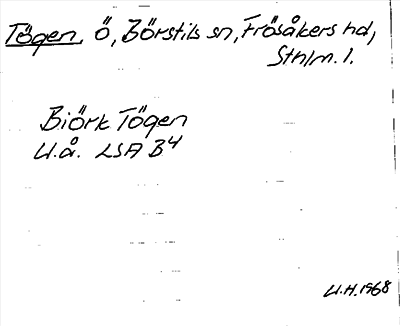 Tögen, Ö, Börstils sn, Frösåkers hd,
Sthlm. l.
Biörk Tögen
U.å. LSA B4
U.H. 1968